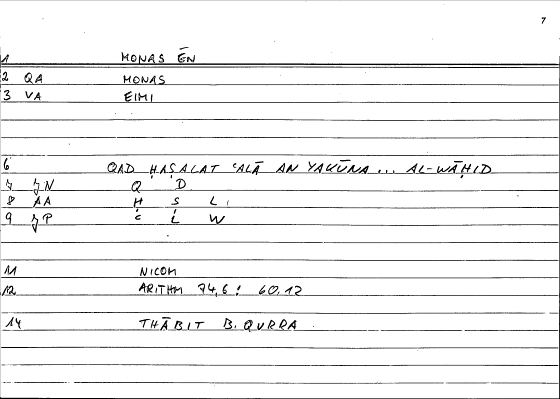 7
1 MONAS ĒN
2 QA MONAS
3 VA EIMI
6 QAD ḤAṢALAT ʿALĀ AN YAKŪNA... AL-WĀḤID
7 ȝN Q D
8 AA Ḥ Ṣ L
9 ȝP ʿ L W
11 NICOM
12 ARITHM 74,6 : 60.12
14 THĀBIT B. QURRA